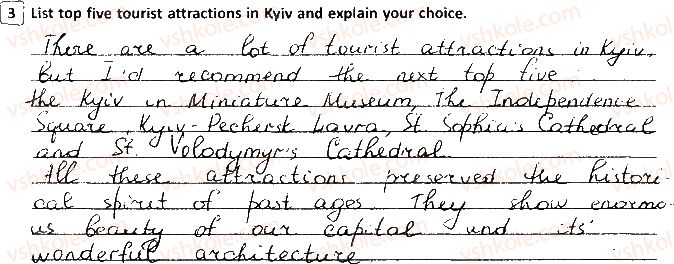 3 List top five tourist attractions in Kyiv and explain your choice.
There are a lot of tourist attractions in Kyiv.
But I'd recommend the next top five
the Kyiv in Miniature Museum, The Independence
Square, Kyiv-Pechersk Lavra, St. Sophia's Cathedral
and St. Volodymyr's Cathedral.
All these attractions preserved the histori-
cal spirit of past ages. They show enormo-
us beauty of our capital and its
wonderful architecture